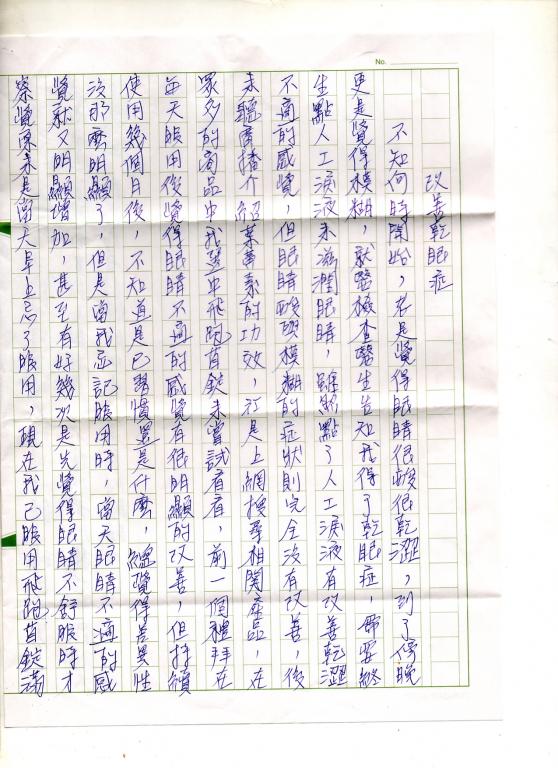 No.
改善乾眼症
不知何時開始，老是覺得眼睛很酸很乾澀，到了傍晚
更是覺得模糊，就醫檢查醫生告知我得了乾眼症，需要終
生點人工淚液來滋潤眼睛，雖然點了人工淚液有改善乾澀
不適的感覺，但眼睛酸與模糊的症狀則完全沒有改善，後
來聽廣播介紹葉黃素的功效，於是上網搜尋相關產品，在
眾多的商品中我選中飛跑首錠來嘗試看看，前一個禮拜在
每天服用後覺得眼睛不適的感覺有很明顯的改善，但持續
使用幾個月後，不知道是已習慣還是什麼，總覺得差異性
沒那麼明顯了，但是當我忘記服用時，當天眼睛不適的感
覺就又明顯增加，甚至有好幾次是先覺得眼睛不舒服時才
察覺原來是當天早上忘了服用，現在我已服用飛跑首錠滿